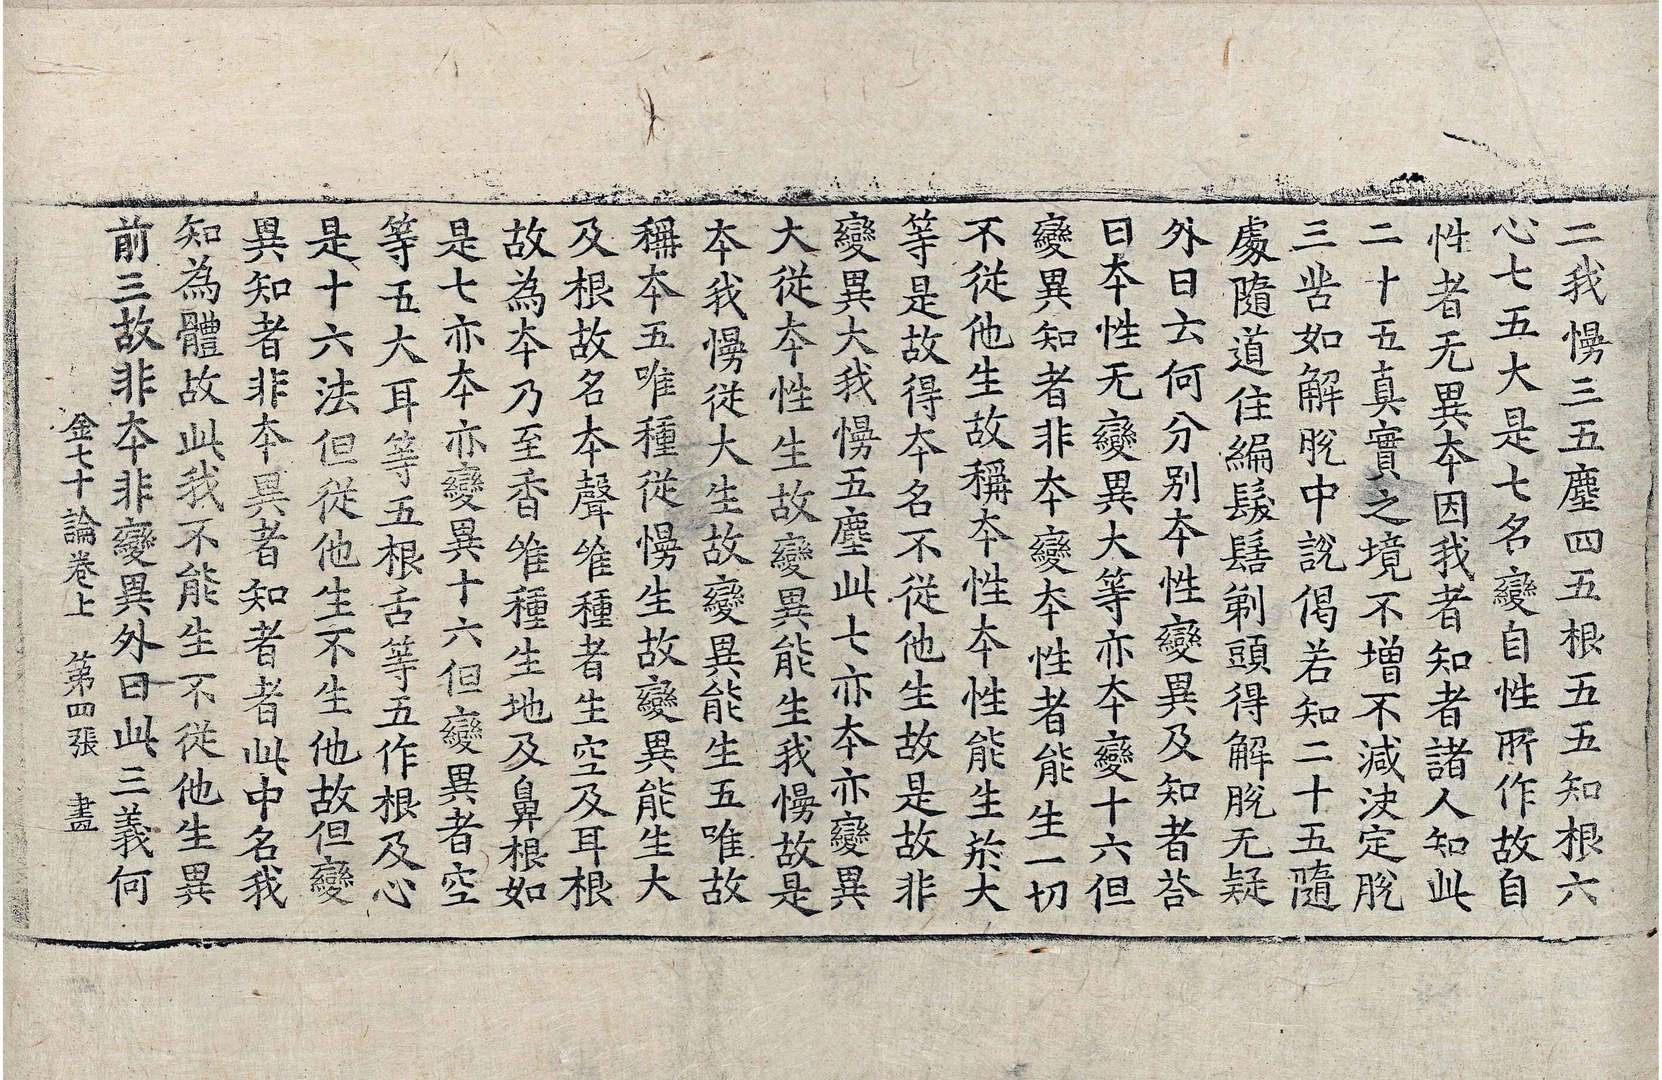 二我慢三五塵四五根五五知根六
心七五大是七名變自性所作故自
性者无異本因我者知者諸人知此
二十五真實之境不增不減決定脫
三苦如解脫中說偈若知二十五隨
處隨道住編髮髻剃頭得解脫无疑
外曰云何分別本性變異及知者荅
曰本性无變異大等亦本變十六但
變異知者非本變本性者能生一切
不從他生故稱本性本性能生於大
等是故得本名不從他生故是故非
變異大我慢五塵此七亦本亦變異
大從本性生故變異能生我慢故是
本我慢從大生故變異能生五唯故
稱本五唯種從慢生故變異能生大
及根故名本聲唯種者生空及耳根
故為本乃至香唯種生地及鼻根如
是七亦本亦變異十六但變異者空
等五大耳等五根舌等五作根及心
是十六法但從他生不生他故但變
異知者非本異者知者者此中名我
知為體故此我不能生不從他生異
前三故非本非變異外曰此三義何
金七十論卷上　第四張　畫